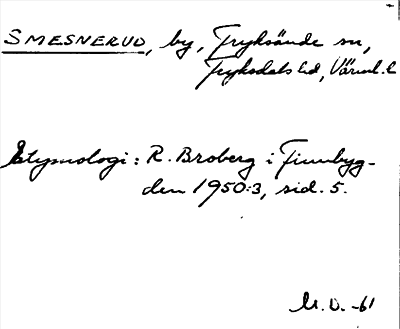 SMESNERUD, by, Fryksände sn,
Fryksdals hd, Värml. l
Etymologi: R. Broberg i Finnbyg-
den 1950:3, sid. 5.
M. O. -61